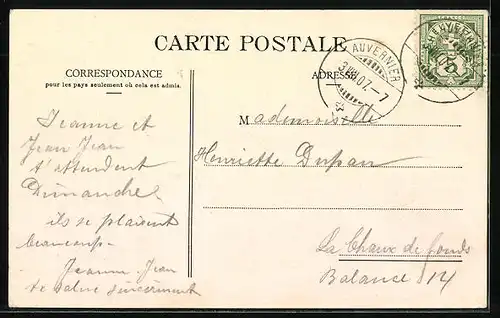 CARTE POSTALE
CORRESPONDANCE
pour les pays seulement où cela est admis.
ADRESSE
AUVERNIER
3.VIII.07.-7
5
Jeanne et
Jean Jean
t'attendent
Dimanche
ils se plaisent
beaucoup.
Jeanne Jean
te salue sincèrement
Mademoiselle
Henriette Dupan
La Chaux de fonds
Balance 14